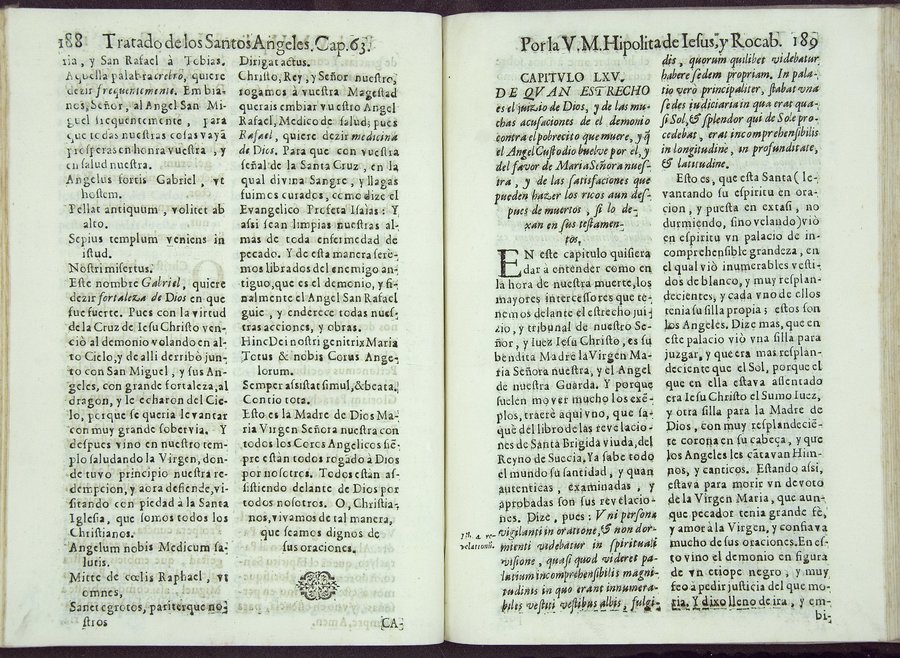 188 Tratado de los Santos Angeles. Cap. 63.
ria, y San Rafael à Tobias.
Aquella palabra crebro, quiere
dezir frequentemente. Embia-
nos, Señor, al Angel San Mi-
guel frequentemente, para
que todas nuestras cosas vayā
prosperas en honra vuestra, y
en salud nuestra.
Angelus fortis Gabriel, vt
hostem.
Pellat antiquum, volitet ab
alto.
Sepius templum veniens in
istud.
Nostri misertus.
Este nombre Gabriel, quiere
dezir fortaleza de Dios en que
fue fuerte. Pues con la virtud
de la Cruz de Iesu Christo ven-
ciò al demonio volando en al-
to Cielo, y de alli derribò jun-
to con San Miguel, y sus An-
geles, con grande fortaleza, al
dragon, y le echaron del Cie-
lo, porque se queria levantar
con muy grande sobervia. Y
despues vino en nuestro tem-
plo saludando la Virgen, don-
de tuvo principio nuestra re-
dempcion, y aora desiende, vi-
sitando con piedad à la Santa
Iglesia, que somos todos los
Christianos.
Angelum nobis Medicum sa-
lutis.
Mitte de cœlis Raphael, vt
omnes,
Sanet egrotos, pariterque no-
stros
Dirigat actus.
Christo, Rey, y Señor nuestro,
rogamos à vuestra Magestad
querais embiar vuestro Angel
Rafael, Medico de salud; pues
Rafael, quiere dezir medicina
de Dios. Para que con vuestra
señal de la Santa Cruz, en la
qual divina Sangre, y llagas
fuimos curados, como dize el
Evangelico Profeta Isaias: Y
assi sean limpias nuestras al-
mas de toda enfermedad de
pecado. Y de esta manera sere-
mos librados del enemigo an-
tiguo, que es el demonio, y fi-
nalmente el Angel San Rafael
guie, y enderece todas nues-
tras acciones, y obras.
Hinc Dei nostri genitrix Maria
Totus & nobis Corus Ange-
lorum.
Semper assistat simul, & beata.
Contio tota.
Esto es la Madre de Dios Ma-
ria Virgen Señora nuestra con
todos los Coros Angelicos siē-
pre están todos rogado à Dios
por nosotros. Todos están as-
sistiendo delante de Dios por
todos nosotros. O, Christia-
nos, vivamos de tal manera,
que seamos dignos de
sus oraciones.
CA-
Por la V. M. Hipolita de Iesus, y Rocab. 189
CAPITVLO LXV.
DE QVAN ESTRECHO
es el juizio de Dios, y de las mu-
chas acusaciones de el demonio
contra el pobrecito que muere, y q̄
el Angel Custodio buelve por el, y
del favor de Maria Señora nues-
tra, y de las satisfaciones que
pueden hazer los ricos aun des-
pues de muertos, si lo de-
xan en sus testamen-
tos.
EN este capitulo quisiera
dar à entender como en
la hora de nuestra muerte, los
mayores intercessores que te-
nemos delante el estrecho jui-
zio, y tribunal de nuestro Se-
ñor, y Iuez Iesu Christo, es su
bendita Madre la Virgen Ma-
ria Señora nuestra, y el Angel
de nuestra Guarda. Y porque
suelen mover mucho los exē-
plos, traerè aqui vno, que sa-
què del libro de las revelacio-
nes de Santa Brigida viuda, del
Reyno de Suecia. Ya sabe todo
el mundo su santidad, y quan
autenticas, examinadas, y
aprobadas son sus revelacio-
nes. Dize, pues: Vni persona
vigilanti in oratione, & non dor-
mienti videbatur in spirituali
visione, quasi quod videret pa-
latium incomprehensibilis magni-
tudinis in quo erant innumera-
biles vestiti vestibus albis, fulgi-
dis, quorum quilibet videbatur
habere sedem propriam. In pala-
tio verò principaliter, stabat vna
sedes iudiciaria in qua erat qua-
si Sol, & splendor qui de Sole pro-
cedebat, erat incomprehensibilis
in longitudine, in profunditate,
& latitudine.
Esto es, que esta Santa (le-
vantando su espiritu en ora-
cion, y puesta en extasi, no
durmiendo, sino velando) viò
en espiritu vn palacio de in-
comprehensible grandeza, en
el qual viò inumerables vesti-
dos de blanco, y muy resplan-
decientes, y cada vno de ellos
tenia su silla propia; estos son
los Angeles. Dize mas, que en
este palacio viò vna silla para
juzgar, y que era mas resplan-
deciente que el Sol, porque el
que en ella estava assentado
era Iesu Christo el Sumo Iuez,
y otra silla para la Madre de
Dios, con muy resplandeciē-
te corona en su cabeça, y que
los Angeles les cātavan Him-
nos, y canticos. Estando assi,
estava para morir vn devoto
de la Virgen Maria, que aun-
que pecador tenia grande fè,
y amor à la Virgen, y confiava
mucho de sus oraciones. En es-
to vino el demonio en figura
de vn etiope negro, y muy
feo à pedir justicia del que mo-
ria. Y dixo lleno de ira, y em-
bi-